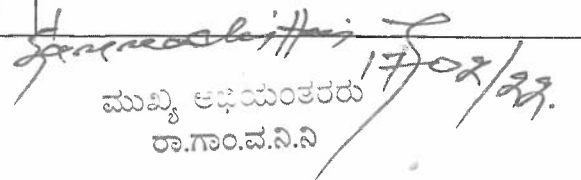 17/02/22.
ಮುಖ್ಯ ಅಭಿಯಂತರರು
ರಾ.ಗಾಂ.ವ.ನಿ.ನಿ